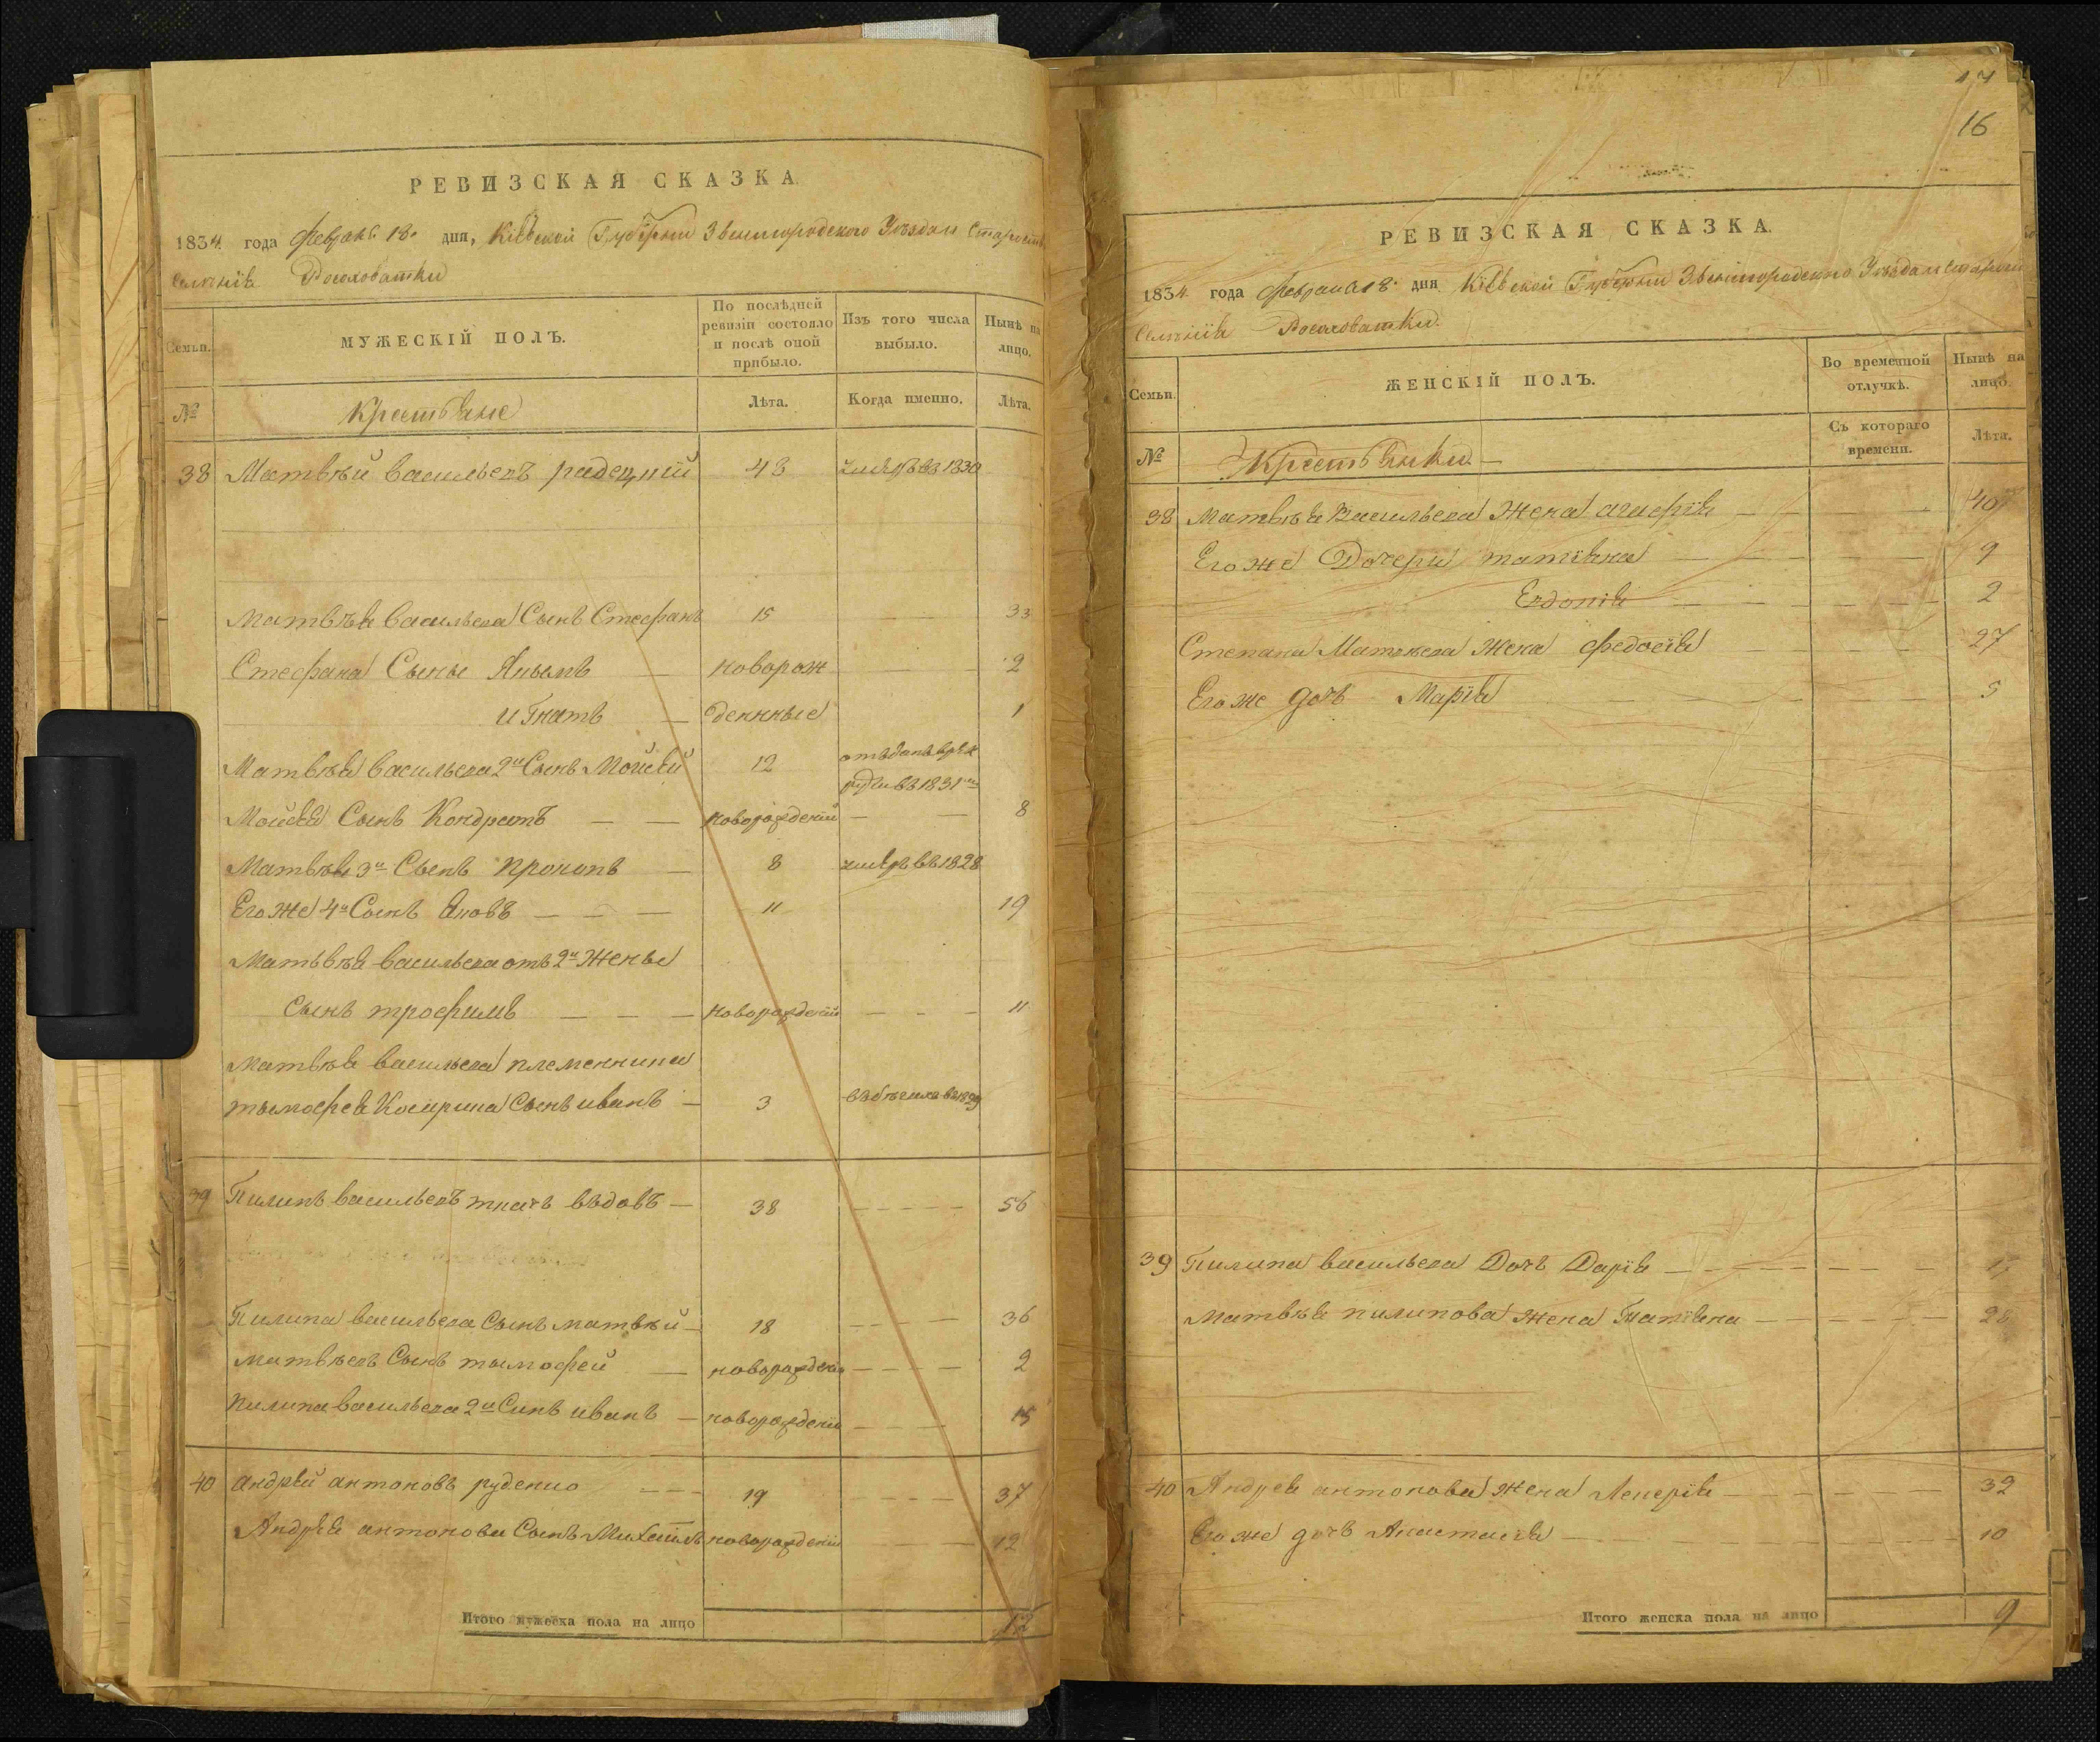 РЕВИЗСКАЯ СКАЗКА.
1834 года Февраля 18 дня, Кіевской Губерніи Звенигородского Уѣзда Староства
селенія Росоховатки
Семьи.
МУЖЕСКІЙ ПОЛЪ.
По послѣдней ревизіи состояло и послѣ оной прибыло.
Изъ того числа выбыло.
Нынѣ на лицо.
№
Крестьяне
Лѣта.
Когда именно.
Лѣта.
38 Матвѣй васильевъ радецкій 48 умеръ въ 1830
Матвѣя васильева Сынъ Стефанъ 15 — 33
Стефана Сыны Якымъ — новорож — 2
игнатъ — денные 1
Матвѣя васильева 2й Сынъ Мойсей 12 отъданъ в рек
руты въ 1831
Мойсея Сынъ Кондратъ — — новорожденій — — 8
Матвѣя 3й Сынъ прокопъ — 8 умеръ въ 1828
Егоже 4й Сынъ яковъ — — — 11 19
Матьвѣя васильева отъ 2й Жены
Сынъ трофимъ — — — новорожденій — — — 11
Матвѣя васильева племенника
тымофея Сынъ иванъ — 3 въ 1829
39 Пилипъ васильевъ ткачъ въдовъ — 38 — — — — — 56
Пилипа васильева Сынъ матвѣй — 18 — — — — 36
матвѣевъ Сынъ тымофей — новорожденій — — — — 2
пилипа васильева 2й Синъ иванъ — новорожденій — — — 15
40 андрей антоновъ руденко — — — 19 — — — 37
Андрея антонова Сынъ Михаилъ новорожденій — — — 12
Итого мужеска пола на лицо 12
17
16
РЕВИЗСКАЯ СКАЗКА.
1834 года Февраля 18 дня Кіевской Губерніи Звенигородского Уѣзда Староства
селенія Росоховатки
Семьи.
ЖЕНСКІЙ ПОЛЪ.
Во временной отлучкѣ.
Нынѣ на лицо.
№
Крестьянки —
Съ котораго времени.
Лѣта.
38 Матвѣя Васильева Жена — — — — 40
Егоже Дочери татіяна — — — — 9
Евдокія — — — — 2
Степана Матвѣева Жена федосія — — — 27
Егоже дочъ Марія — — — 5
39 Пилипа васильева Дочъ Дарія — — — — — —
Матвѣя пилипова жена Татіяна — — — — — — 28
40 Андрея антонова жена — — — — — 32
Егоже дочъ Анастасія — — — — — 10
Итого женска пола на лицо 9